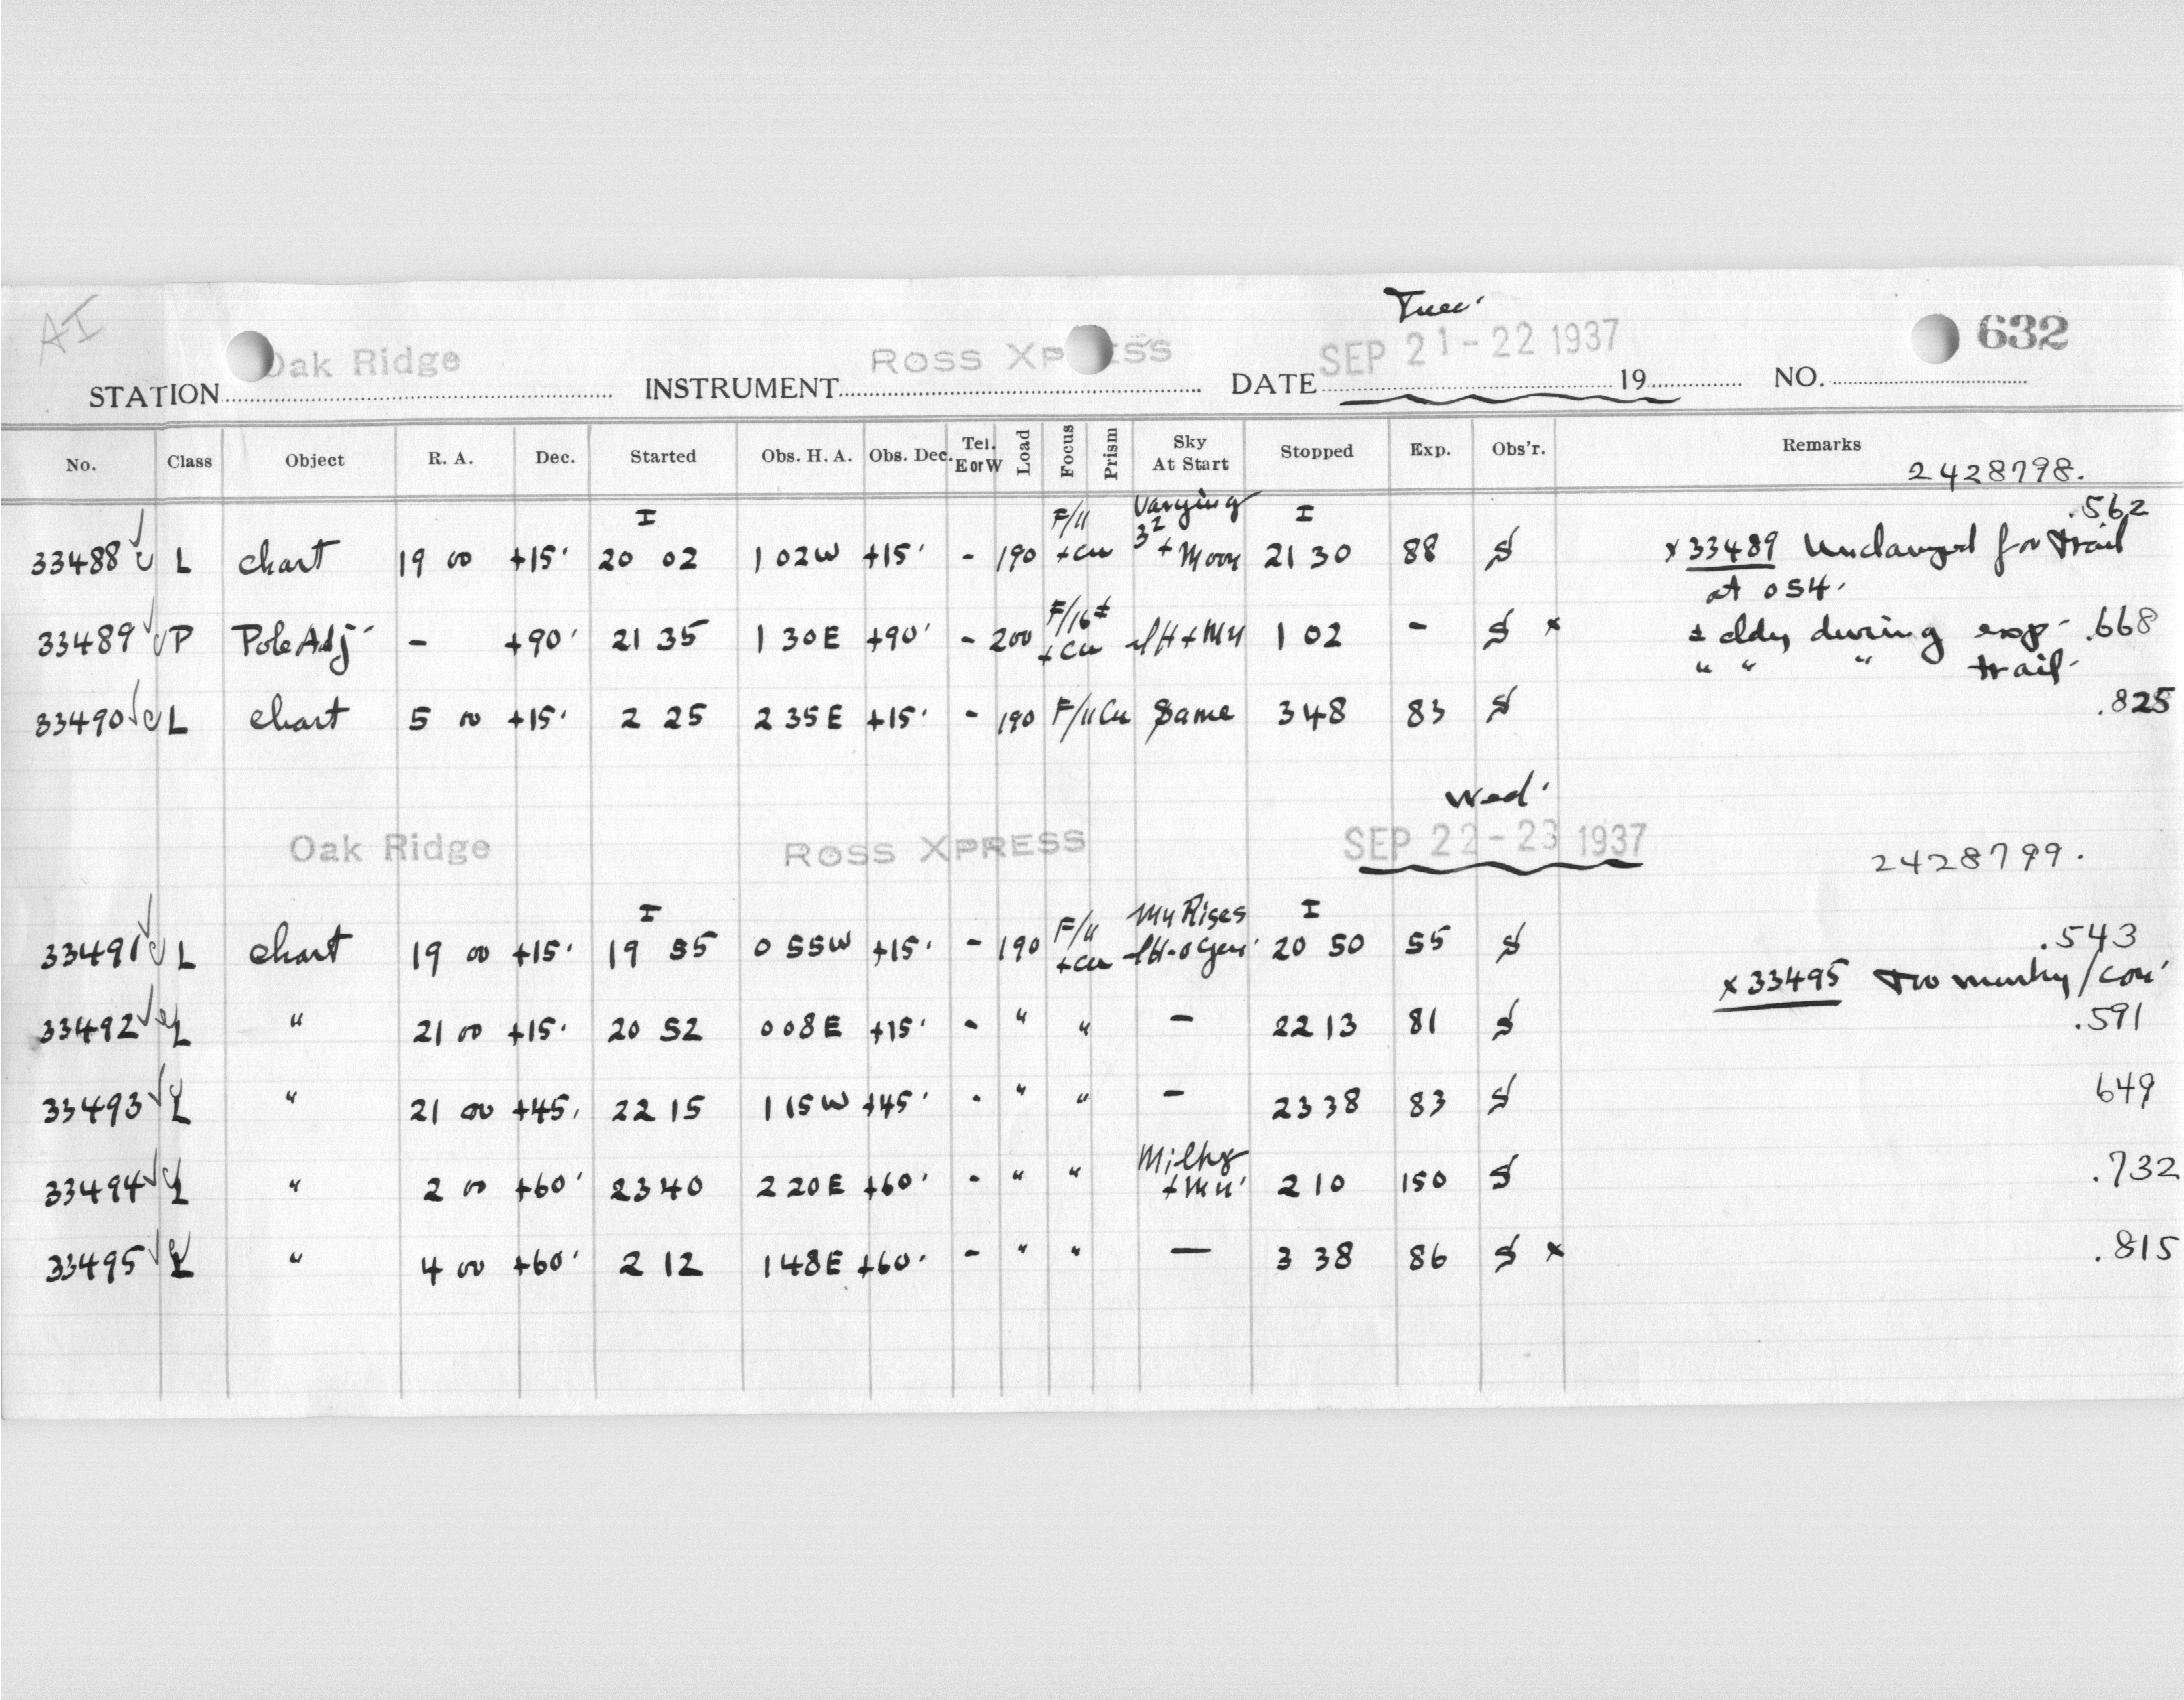 AI
Tues.
Oak Ridge ROSS XPRESS SEP 21-22 1937 632
STATION INSTRUMENT DATE 19 NO.
No. Class Object R. A. Dec. Started Obs. H. A. Obs. Dec. Tel. E or W Load Focus Prism Sky At Start Stopped Exp. Obs'r. Remarks
2428798.
I F/11 Varying I .562
33488 L chart 19 00 +15° 20 02 1 02W +15° - 190 +Cu + Moon 21 30 88 S x 33489 Unclamped for trail
at 054.
F/16±
33489 P Pole Adj. - +90° 21 35 1 30E +90° - 200 +Cu 1 02 - S x ± cldy during exp. .668
" " " trail.
33490 L chart 5 00 +15° 2 25 2 35E +15° - 190 F/11 Cu Same 3 48 83 S .825
Wed.
Oak Ridge ROSS XPRESS SEP 22-23 1937
2428799.
I F/11 Rises I
33491 L chart 19 00 +15° 19 55 0 55W +15° - 190 +Cu 20 50 55 S .543
x 33495 Too
33492 L " 21 00 +15° 20 52 0 08E +15° - " " - 22 13 81 S .591
33493 L " 21 00 +45° 22 15 1 15W +45° - " " - 23 38 83 S 649
Milky
33494 L " 2 00 +60° 23 40 2 20E +60° - " " 2 10 150 S .732
33495 L " 4 00 +60° 2 12 1 48E +60° - " " - 3 38 86 S x .815